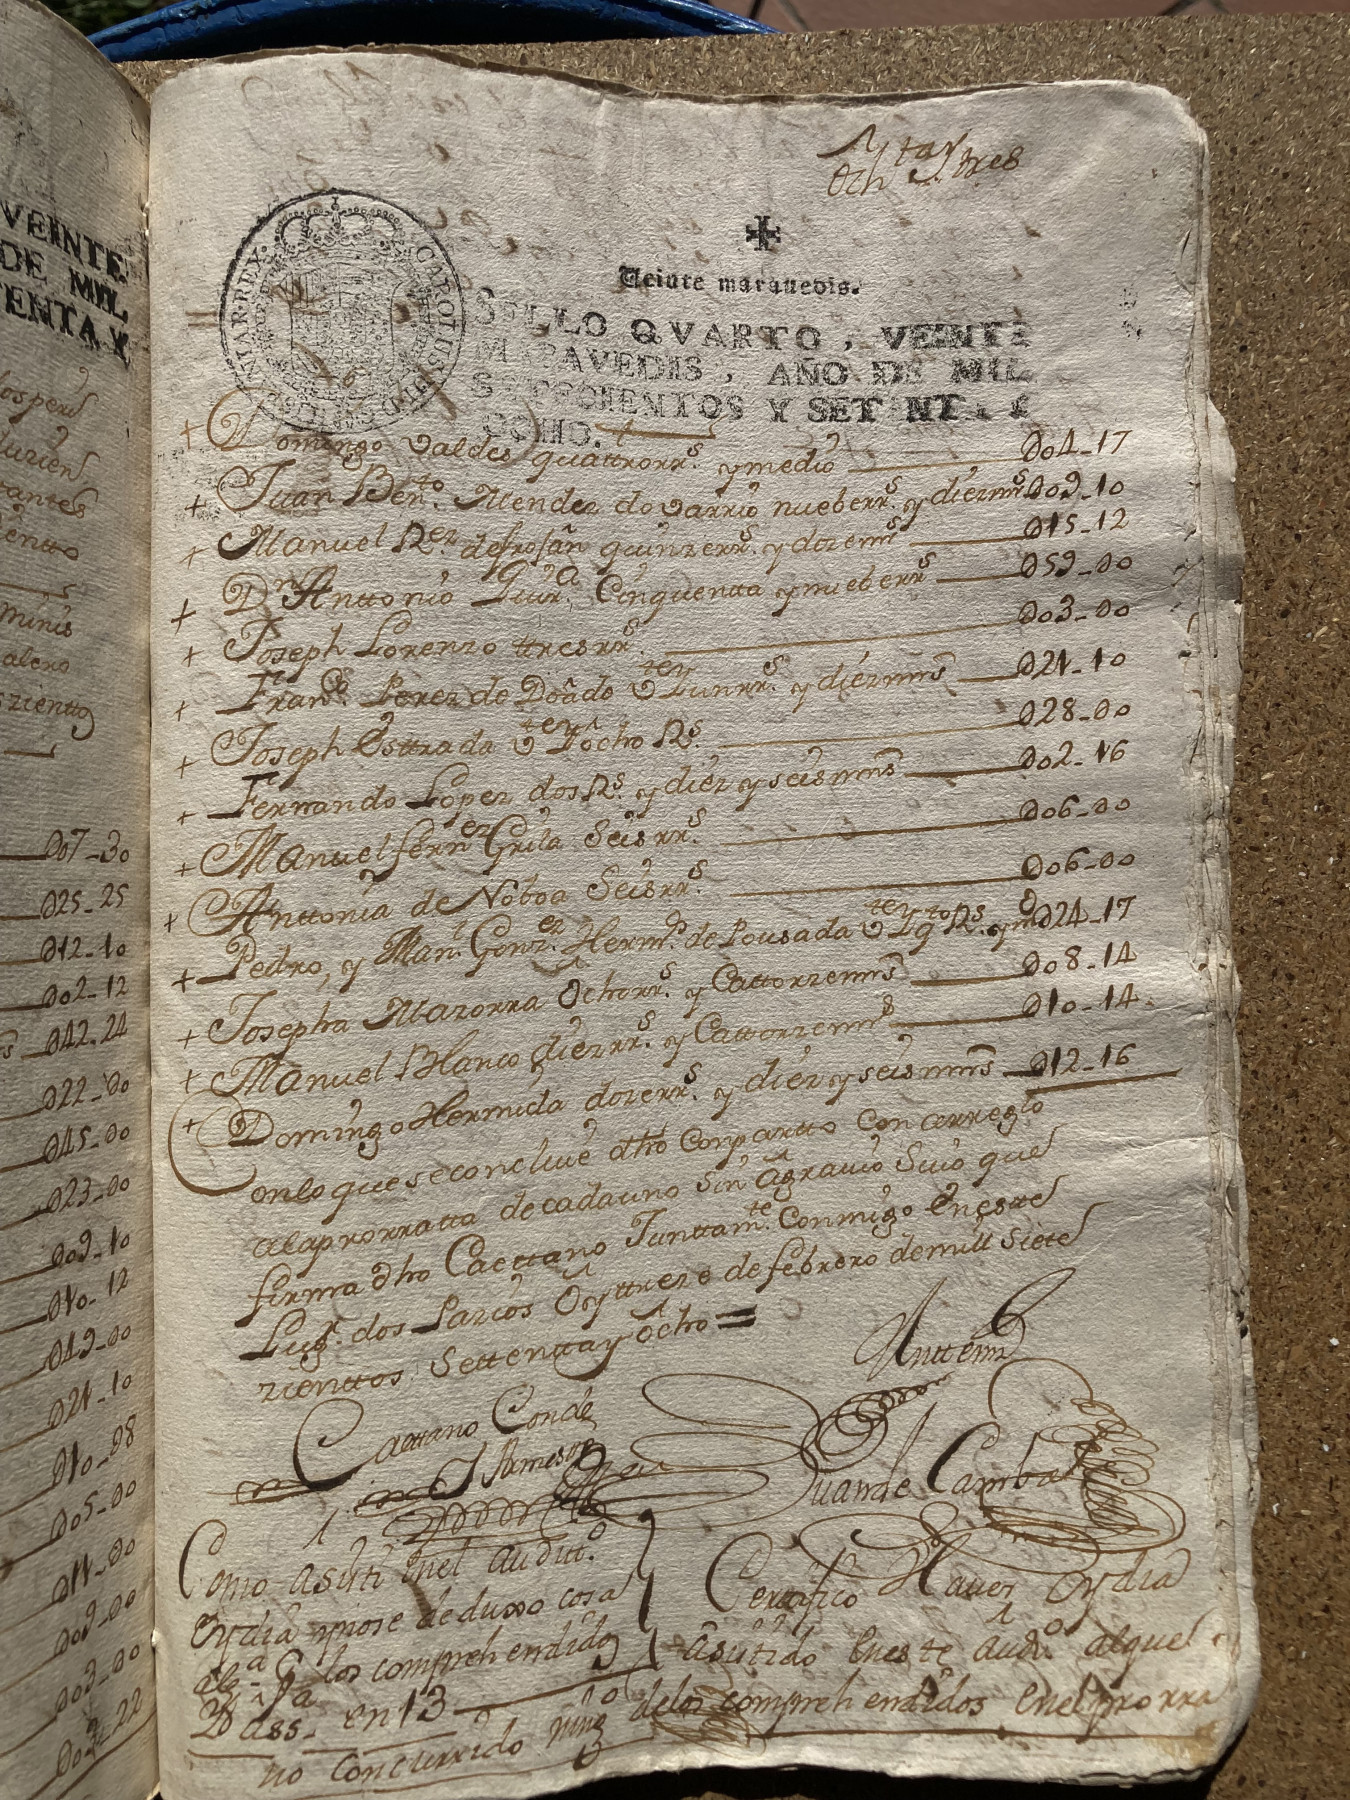 VEINTE
DE MIL
TENTA Y
007-30
025-25
012-10
002-12
042-24
022-00
045-00
023-00
009-10
010-12
049-00
021-10
010-08
005-00
011-00
009-00
003-00
Ochtay tres
Veinte marauedis.
SELLO QVARTO, VEINTE
MARAVEDIS, AÑO DE MIL
SETECIENTOS Y SETENTA Y
OCHO.
+ Domingo Valdes quattrorrs. y medio 004-17
+ Juan Bento. Mendez do varrio nueberrs. y diezmrs 009-10
+ Manuel Rez. defrojan quinzerrs. y dozemrs 015-12
+ Dn Anttonio Quira. Cinquentta y nueberrs 059-00
+ Joseph Lorenzo ttresrrs. 003-00
+ Franco. Perez do Doado Vteyunrrs. y diezmrs 021-10
+ Joseph Esttrada Vteyocho Rs. 028-00
+ Fernando Lopez dos Rs. y diez y seismrs 002-16
+ Manuel fernez Grila Seisrrs. 006-00
+ Anttonia de Noboa Seisrrs. 006-00
+ Pedro, y Manl. Gonzez. Hermos. de Pousada Vteyqto Rs. y mo 024-17
+ Josepha Mazorra Ochorrs. y Cattorzemrs 008-14
+ Manuel Blanco diezrrs. y Cattorzemrs 010-14
+ Domingo Hermida dozerrs. y diez y seismrs 012-16
Conlo que se concluie dho conpartto con arreglo
alaprorratta de cada uno Sin Agrauio Suio que
firma dho Caettano Junttamte. Conmigo Enestte
Lugr. dos Pazios Oy ttreze de febrero demill Siete
zienttos Settentta y ocho =
Anttemi
Caettano Conde
Juan de Camba
Como asisti enel audito.
Oy dia y no se deduxo cosa
alga. Por los comprehendidos
en 13
Certifico Hauer Oy dia
asistido En este audo. alque
no Concurrido ningo delos comprehendidos Enel prorra